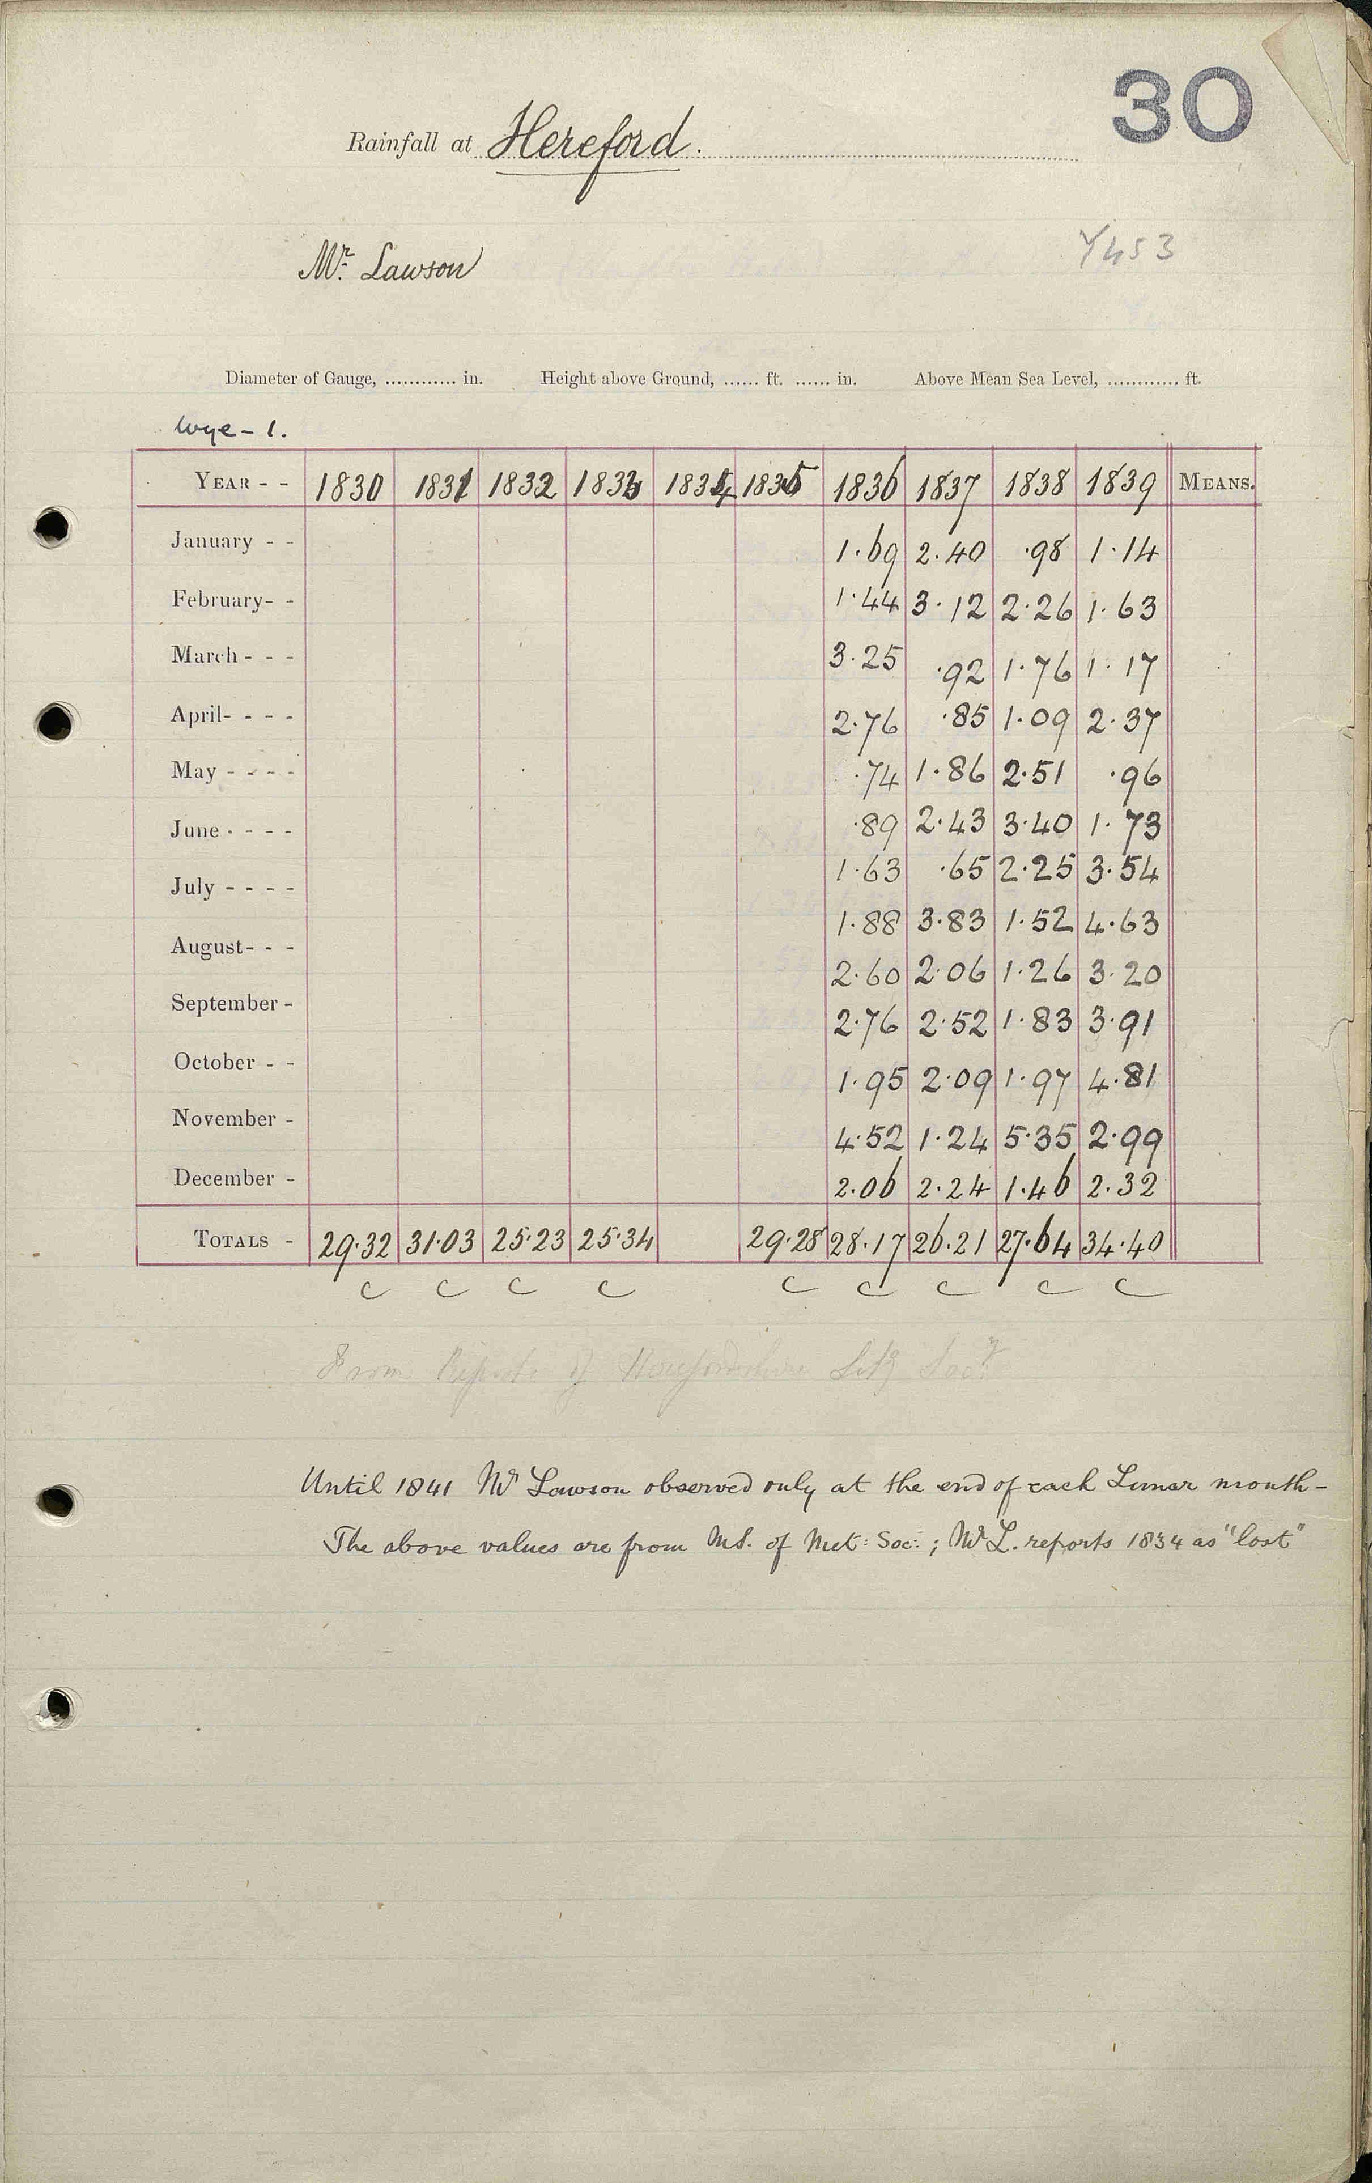 30
Rainfall at Hereford.
Mr. Lawson
Y453
Diameter of Gauge, ............ in. Height above Ground, ...... ft. ...... in. Above Mean Sea Level, ............ ft.
Wye - 1.
YEAR - - 1830 1831 1832 1833 1834 1835 1836 1837 1838 1839 MEANS.
January - - 1.69 2.40 .98 1.14
February- - 1.44 3.12 2.26 1.63
March - - - 3.25 .92 1.76 1.17
April- - - - 2.76 .85 1.09 2.37
May - - - - .74 1.86 2.51 .96
June - - - - .89 2.43 3.40 1.73
July - - - - 1.63 .65 2.25 3.54
1.88 3.83 1.52 4.63
August- - - 2.60 2.06 1.26 3.20
September - 2.76 2.52 1.83 3.91
October - - 1.95 2.09 1.97 4.81
November - 4.52 1.24 5.35 2.99
December - 2.06 2.24 1.46 2.32
TOTALS - 29.32 31.03 25.23 25.34 29.28 28.17 26.21 27.64 34.40
C C C C C C C C C
From Reports of Herefordshire Soc.y
Until 1841 Mr Lawson observed only at the end of each Lunar month -
The above values are from MS. of Met: Soc: ; Mr L. reports 1834 as "lost"